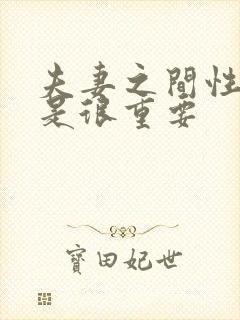 夫妻之間性
是很重要
寶田妃世